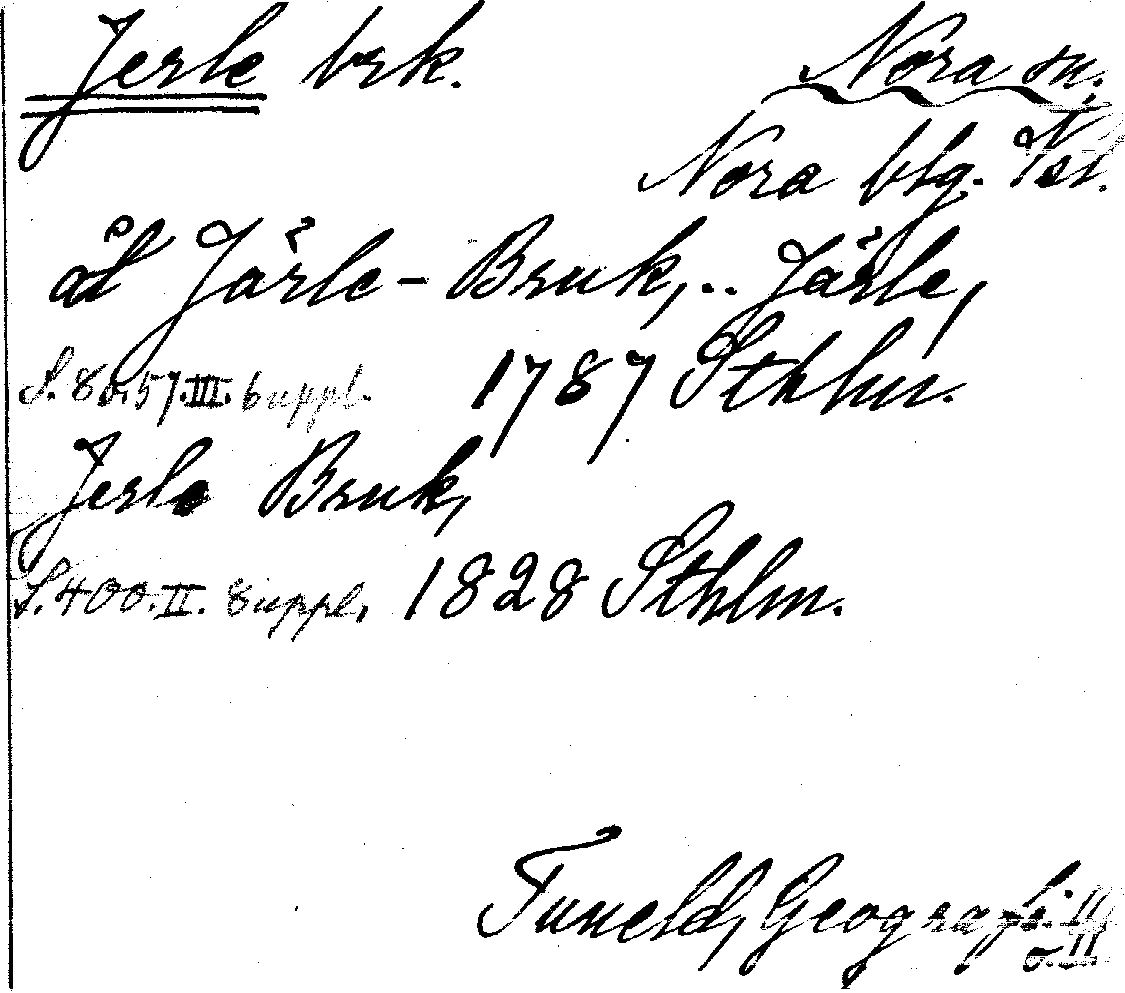 Jerle brk. Nora sn.
Nora btg. Vst.
åt Järle-Bruk, .. Järle,
S. 86.57.III. suppl. 1787 Sthlm.
Jerle Bruk,
S. 400. II. Suppl. 1828 Sthlm.
Tuneld, Geografi. III
o. II